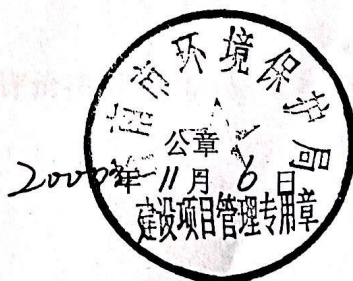 南市环境保护局
公章
年 11 月 6 日
建设项目管理专用章